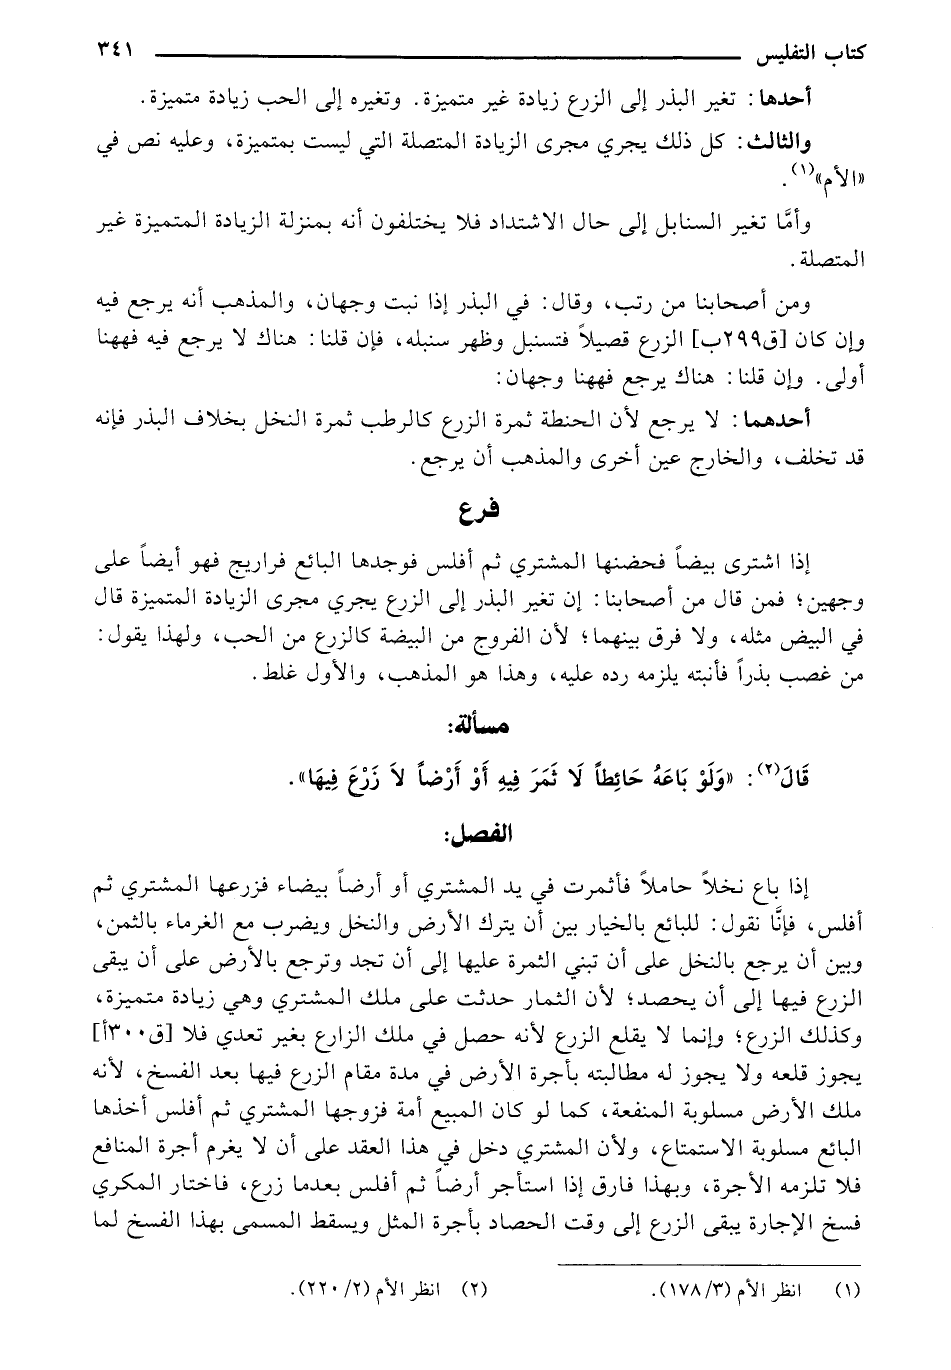 كتاب التفليس ٣٤١
أحدها: تغير البذر إلى الزرع زيادة غير متميزة. وتغيره إلى الحب زيادة متميزة.
والثالث: كل ذلك يجري مجرى الزيادة المتصلة التي ليست بمتميزة، وعليه نص في
«الأم»(١).
وأمَّا تغير السنابل إلى حال الاشتداد فلا يختلفون أنه بمنزلة الزيادة المتميزة غير
المتصلة.
ومن أصحابنا من رتب، وقال: في البذر إذا نبت وجهان، والمذهب أنه يرجع فيه
وإن كان [ق٢٩٩ب] الزرع قصيلاً فتسنبل وظهر سنبله، فإن قلنا: هناك لا يرجع فيه فههنا
أولى. وإن قلنا: هناك يرجع فههنا وجهان:
أحدهما: لا يرجع لأن الحنطة ثمرة الزرع كالرطب ثمرة النخل بخلاف البذر فإنه
قد تخلف، والخارج عين أخرى والمذهب أن يرجع.
فرع
إذا اشترى بيضاً فحضنها المشتري ثم أفلس فوجدها البائع فراريج فهو أيضاً على
وجهين؛ فمن قال من أصحابنا: إن تغير البذر إلى الزرع يجري مجرى الزيادة المتميزة قال
في البيض مثله، ولا فرق بينهما؛ لأن الفروج من البيضة كالزرع من الحب، ولهذا يقول:
من غصب بذراً فأنبته يلزمه رده عليه، وهذا هو المذهب، والأول غلط.
مسألة:
قَالَ(٢): «وَلَوْ بَاعَهُ حَائِطاً لَا ثَمَرَ فِيهِ أَوْ أَرْضاً لاَ زَرْعَ فِيهَا».
الفصل:
إذا باع نخلاً حاملاً فأثمرت في يد المشتري أو أرضاً بيضاء فزرعها المشتري ثم
أفلس، فإنَّا نقول: للبائع بالخيار بين أن يترك الأرض والنخل ويضرب مع الغرماء بالثمن،
وبين أن يرجع بالنخل على أن تبني الثمرة عليها إلى أن تجد وترجع بالأرض على أن يبقى
الزرع فيها إلى أن يحصد؛ لأن الثمار حدثت على ملك المشتري وهي زيادة متميزة،
وكذلك الزرع؛ وإنما لا يقلع الزرع لأنه حصل في ملك الزارع بغير تعدي فلا [ق٣٠٠أ]
يجوز قلعه ولا يجوز له مطالبته بأجرة الأرض في مدة مقام الزرع فيها بعد الفسخ، لأنه
ملك الأرض مسلوبة المنفعة، كما لو كان المبيع أمة فزوجها المشتري ثم أفلس أخذها
البائع مسلوبة الاستمتاع، ولأن المشتري دخل في هذا العقد على أن لا يغرم أجرة المنافع
فلا تلزمه الأجرة، وبهذا فارق إذا استأجر أرضاً ثم أفلس بعدما زرع، فاختار المكري
فسخ الإجارة يبقى الزرع إلى وقت الحصاد بأجرة المثل ويسقط المسمى بهذا الفسخ لما
(١) انظر الأم (٣/ ١٧٨). (٢) انظر الأم (٢/ ٢٢٠).